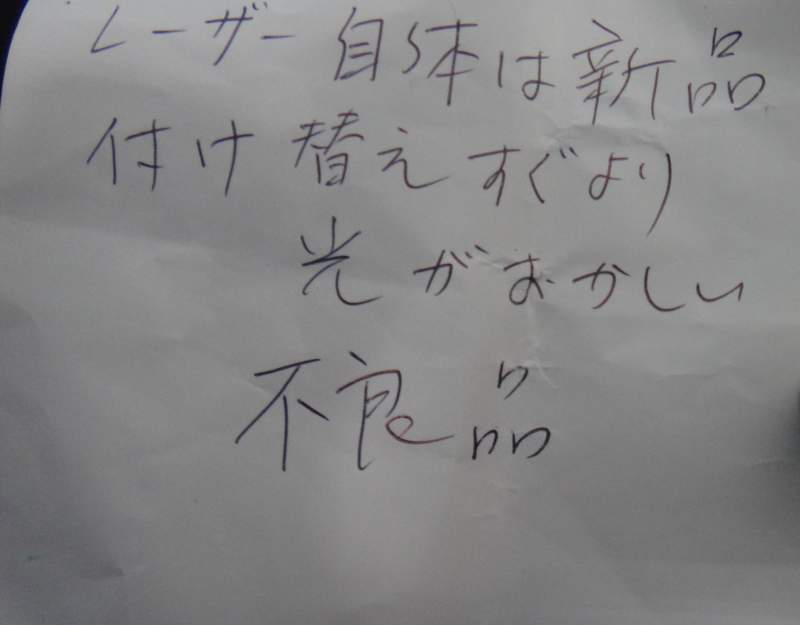 レーザー自体は新品
付け替えすぐより
光がおかしい
不良品